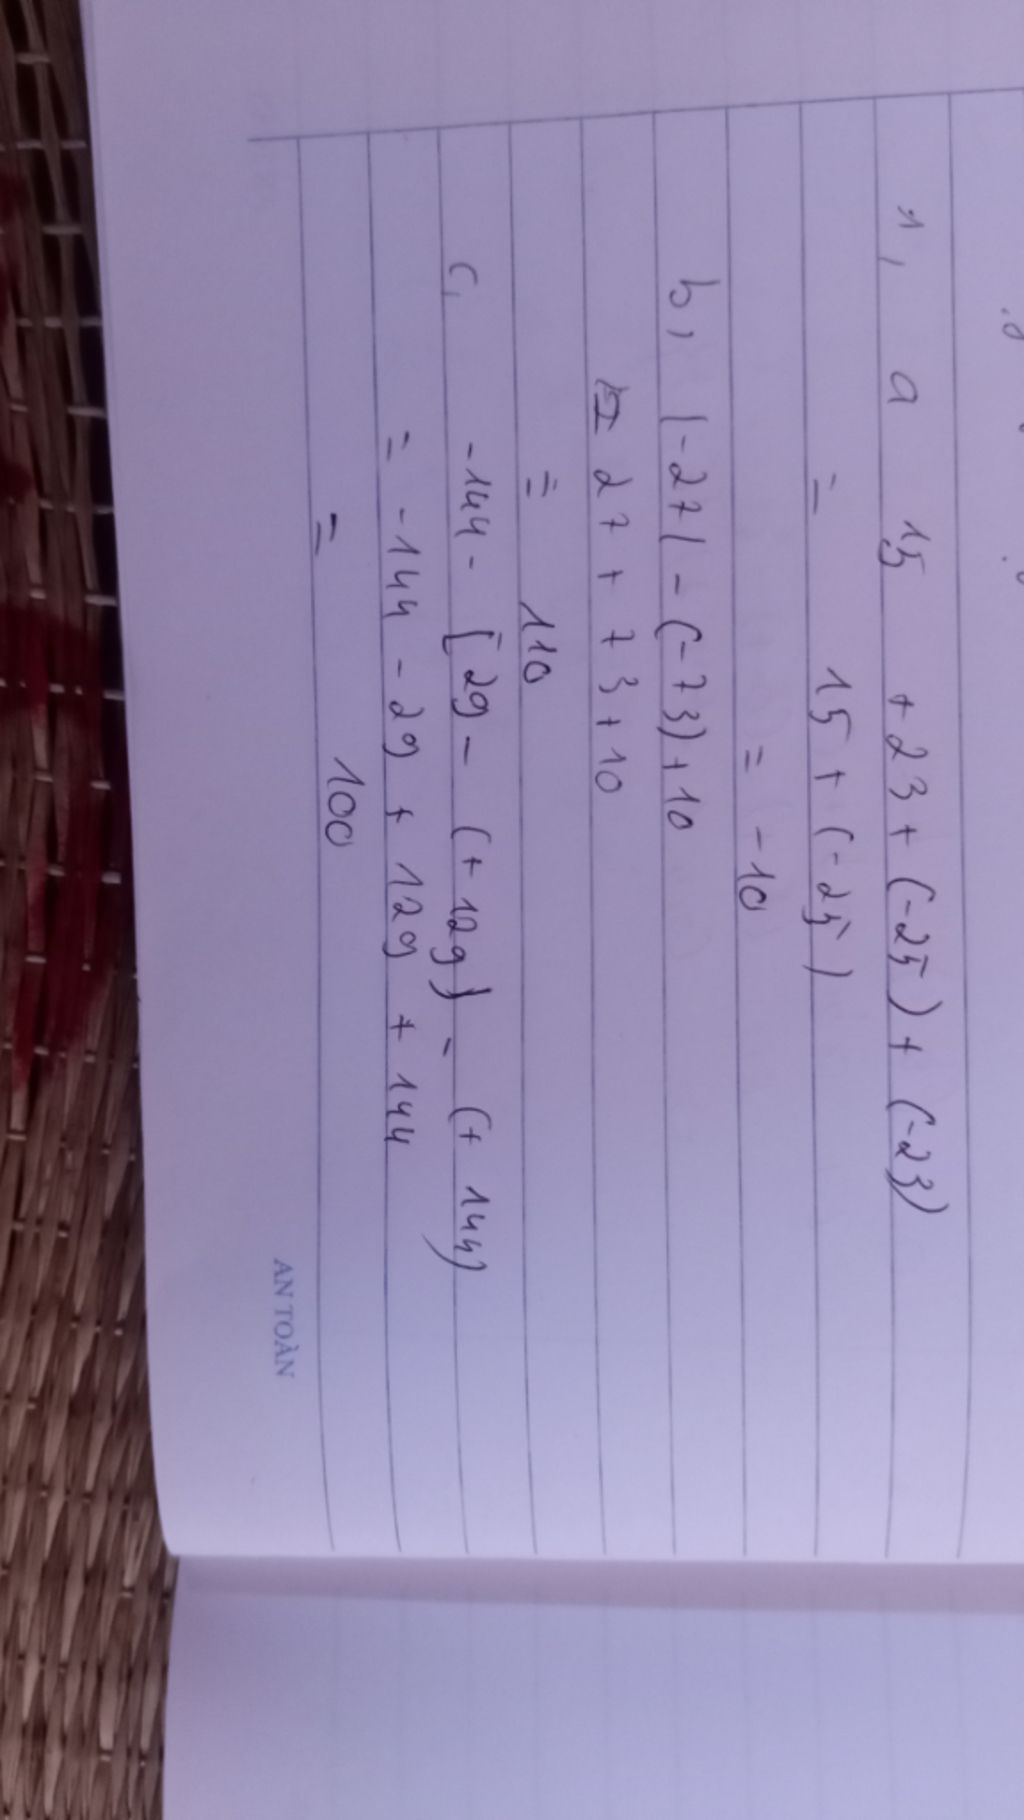 1, a 15 + 23 + (-25) + (-23)
= 15 + (-25)
= -10
b, |-27| - (-73) + 10
= 27 + 73 + 10
= 110
c, -144 - [29 - (+129] - (+144)
= -144 - 29 + 129 + 144
= 100
AN TOÀN